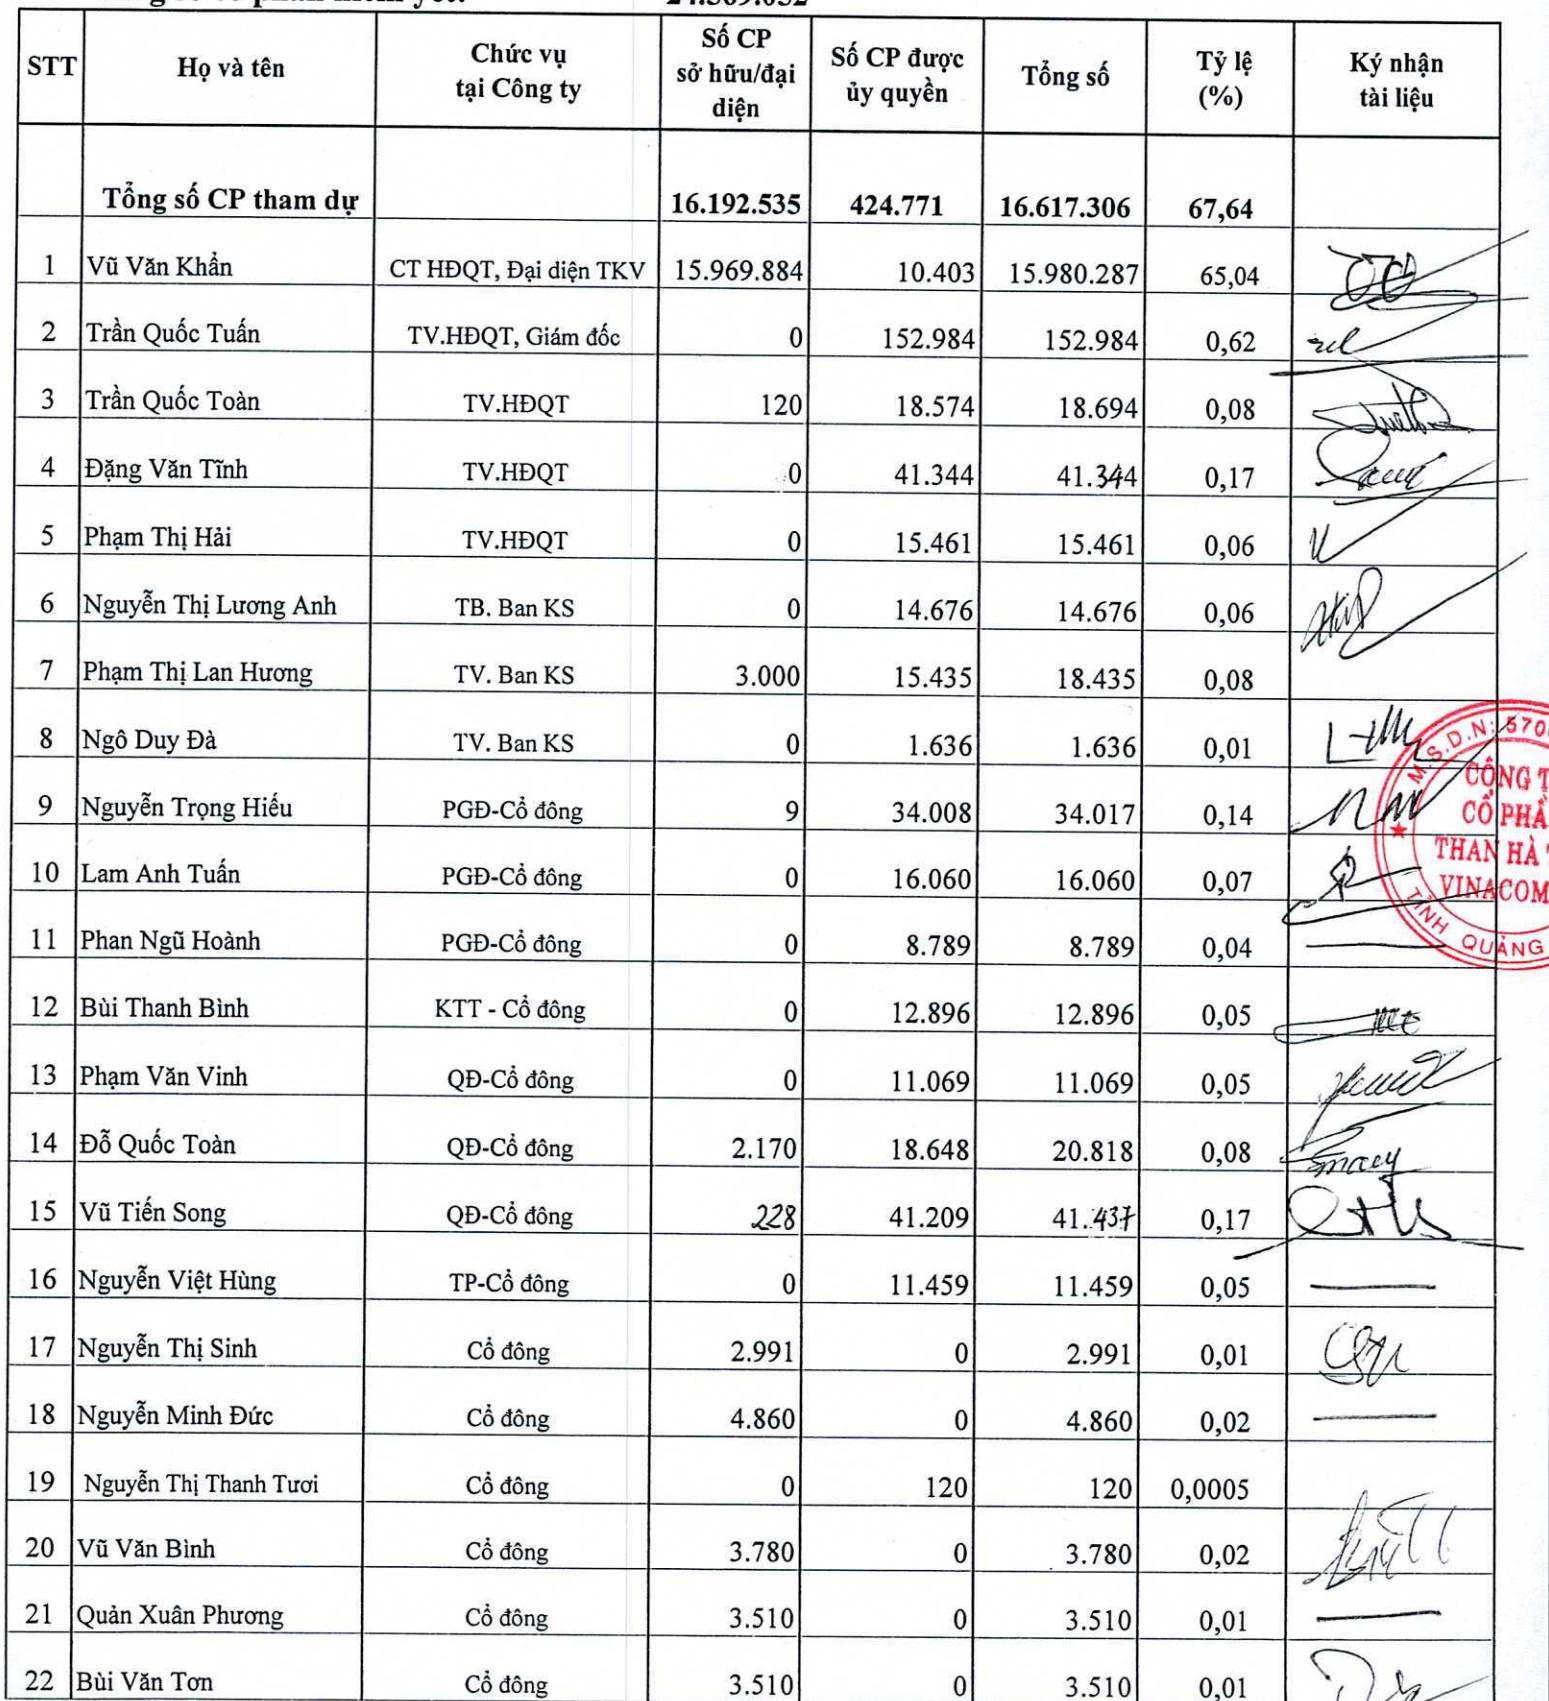 24.569.052
STT Họ và tên Chức vụ tại Công ty Số CP sở hữu/đại diện Số CP được ủy quyền Tổng số Tỷ lệ (%) Ký nhận tài liệu
Tổng số CP tham dự 16.192.535 424.771 16.617.306 67,64
1 Vũ Văn Khẩn CT HĐQT, Đại diện TKV 15.969.884 10.403 15.980.287 65,04
2 Trần Quốc Tuấn TV.HĐQT, Giám đốc 0 152.984 152.984 0,62
3 Trần Quốc Toàn TV.HĐQT 120 18.574 18.694 0,08
4 Đặng Văn Tĩnh TV.HĐQT 0 41.344 41.344 0,17
5 Phạm Thị Hải TV.HĐQT 0 15.461 15.461 0,06
6 Nguyễn Thị Lương Anh TB. Ban KS 0 14.676 14.676 0,06
7 Phạm Thị Lan Hương TV. Ban KS 3.000 15.435 18.435 0,08
8 Ngô Duy Đà TV. Ban KS 0 1.636 1.636 0,01
9 Nguyễn Trọng Hiếu PGĐ-Cổ đông 9 34.008 34.017 0,14
10 Lam Anh Tuấn PGĐ-Cổ đông 0 16.060 16.060 0,07
11 Phan Ngũ Hoành PGĐ-Cổ đông 0 8.789 8.789 0,04
12 Bùi Thanh Bình KTT - Cổ đông 0 12.896 12.896 0,05
13 Phạm Văn Vinh QĐ-Cổ đông 0 11.069 11.069 0,05
14 Đỗ Quốc Toàn QĐ-Cổ đông 2.170 18.648 20.818 0,08
15 Vũ Tiến Song QĐ-Cổ đông 228 41.209 41.437 0,17
16 Nguyễn Việt Hùng TP-Cổ đông 0 11.459 11.459 0,05
17 Nguyễn Thị Sinh Cổ đông 2.991 0 2.991 0,01
18 Nguyễn Minh Đức Cổ đông 4.860 0 4.860 0,02
19 Nguyễn Thị Thanh Tươi Cổ đông 0 120 120 0,0005
20 Vũ Văn Bình Cổ đông 3.780 0 3.780 0,02
21 Quản Xuân Phương Cổ đông 3.510 0 3.510 0,01
22 Bùi Văn Tơn Cổ đông 3.510 0 3.510 0,01
M.S.D.N: 570
CÔNG T
CỔ PHẦ
THAN HÀ
VINACOM
TỈNH QUẢNG